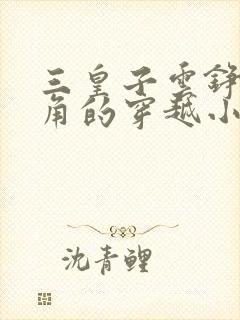 三皇子云铮
角的穿越小
沈青鲤